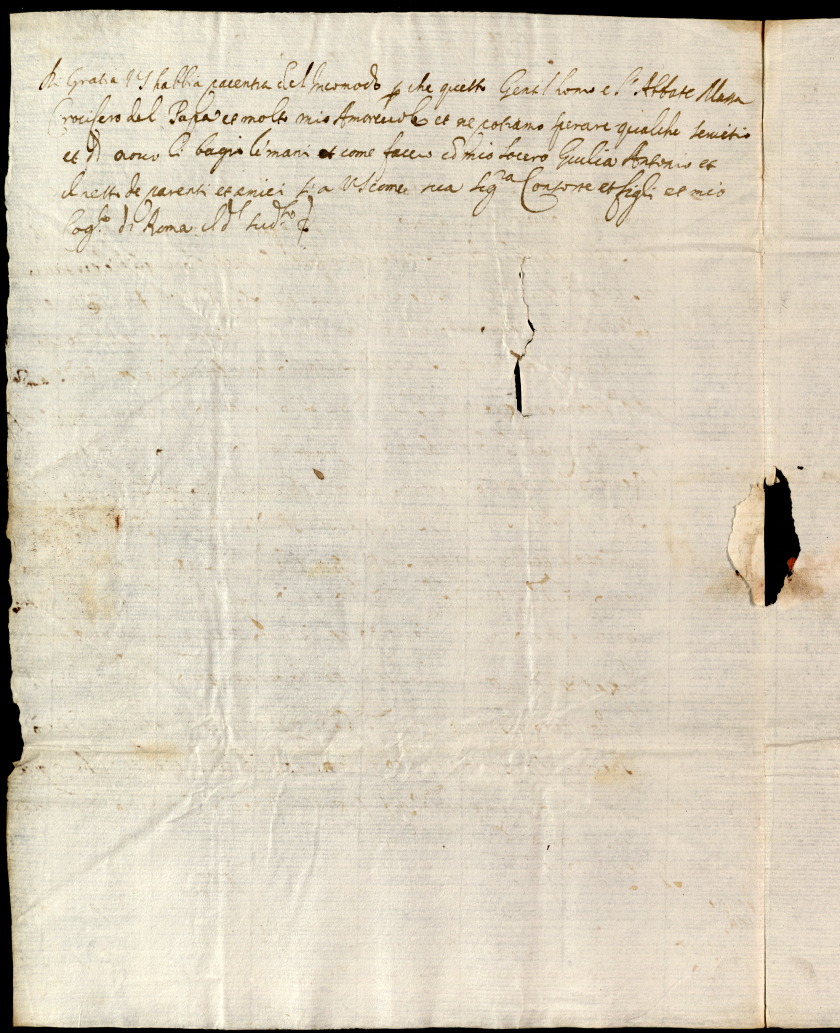 Di Gratia VS habbia pacentia del Incomodo p che questo Gentilhomo e Sr Abbate Massa
Crocifero del Papa et molto mio Amorevole et ne potiamo sperare qualche servitio
et di novo li bagio le mani et come faccio con mio socero Giulia Antonio et
il resto de parenti et amici si a VS come sua Sigra Consorte et figli et mio
di Roma il di sudto